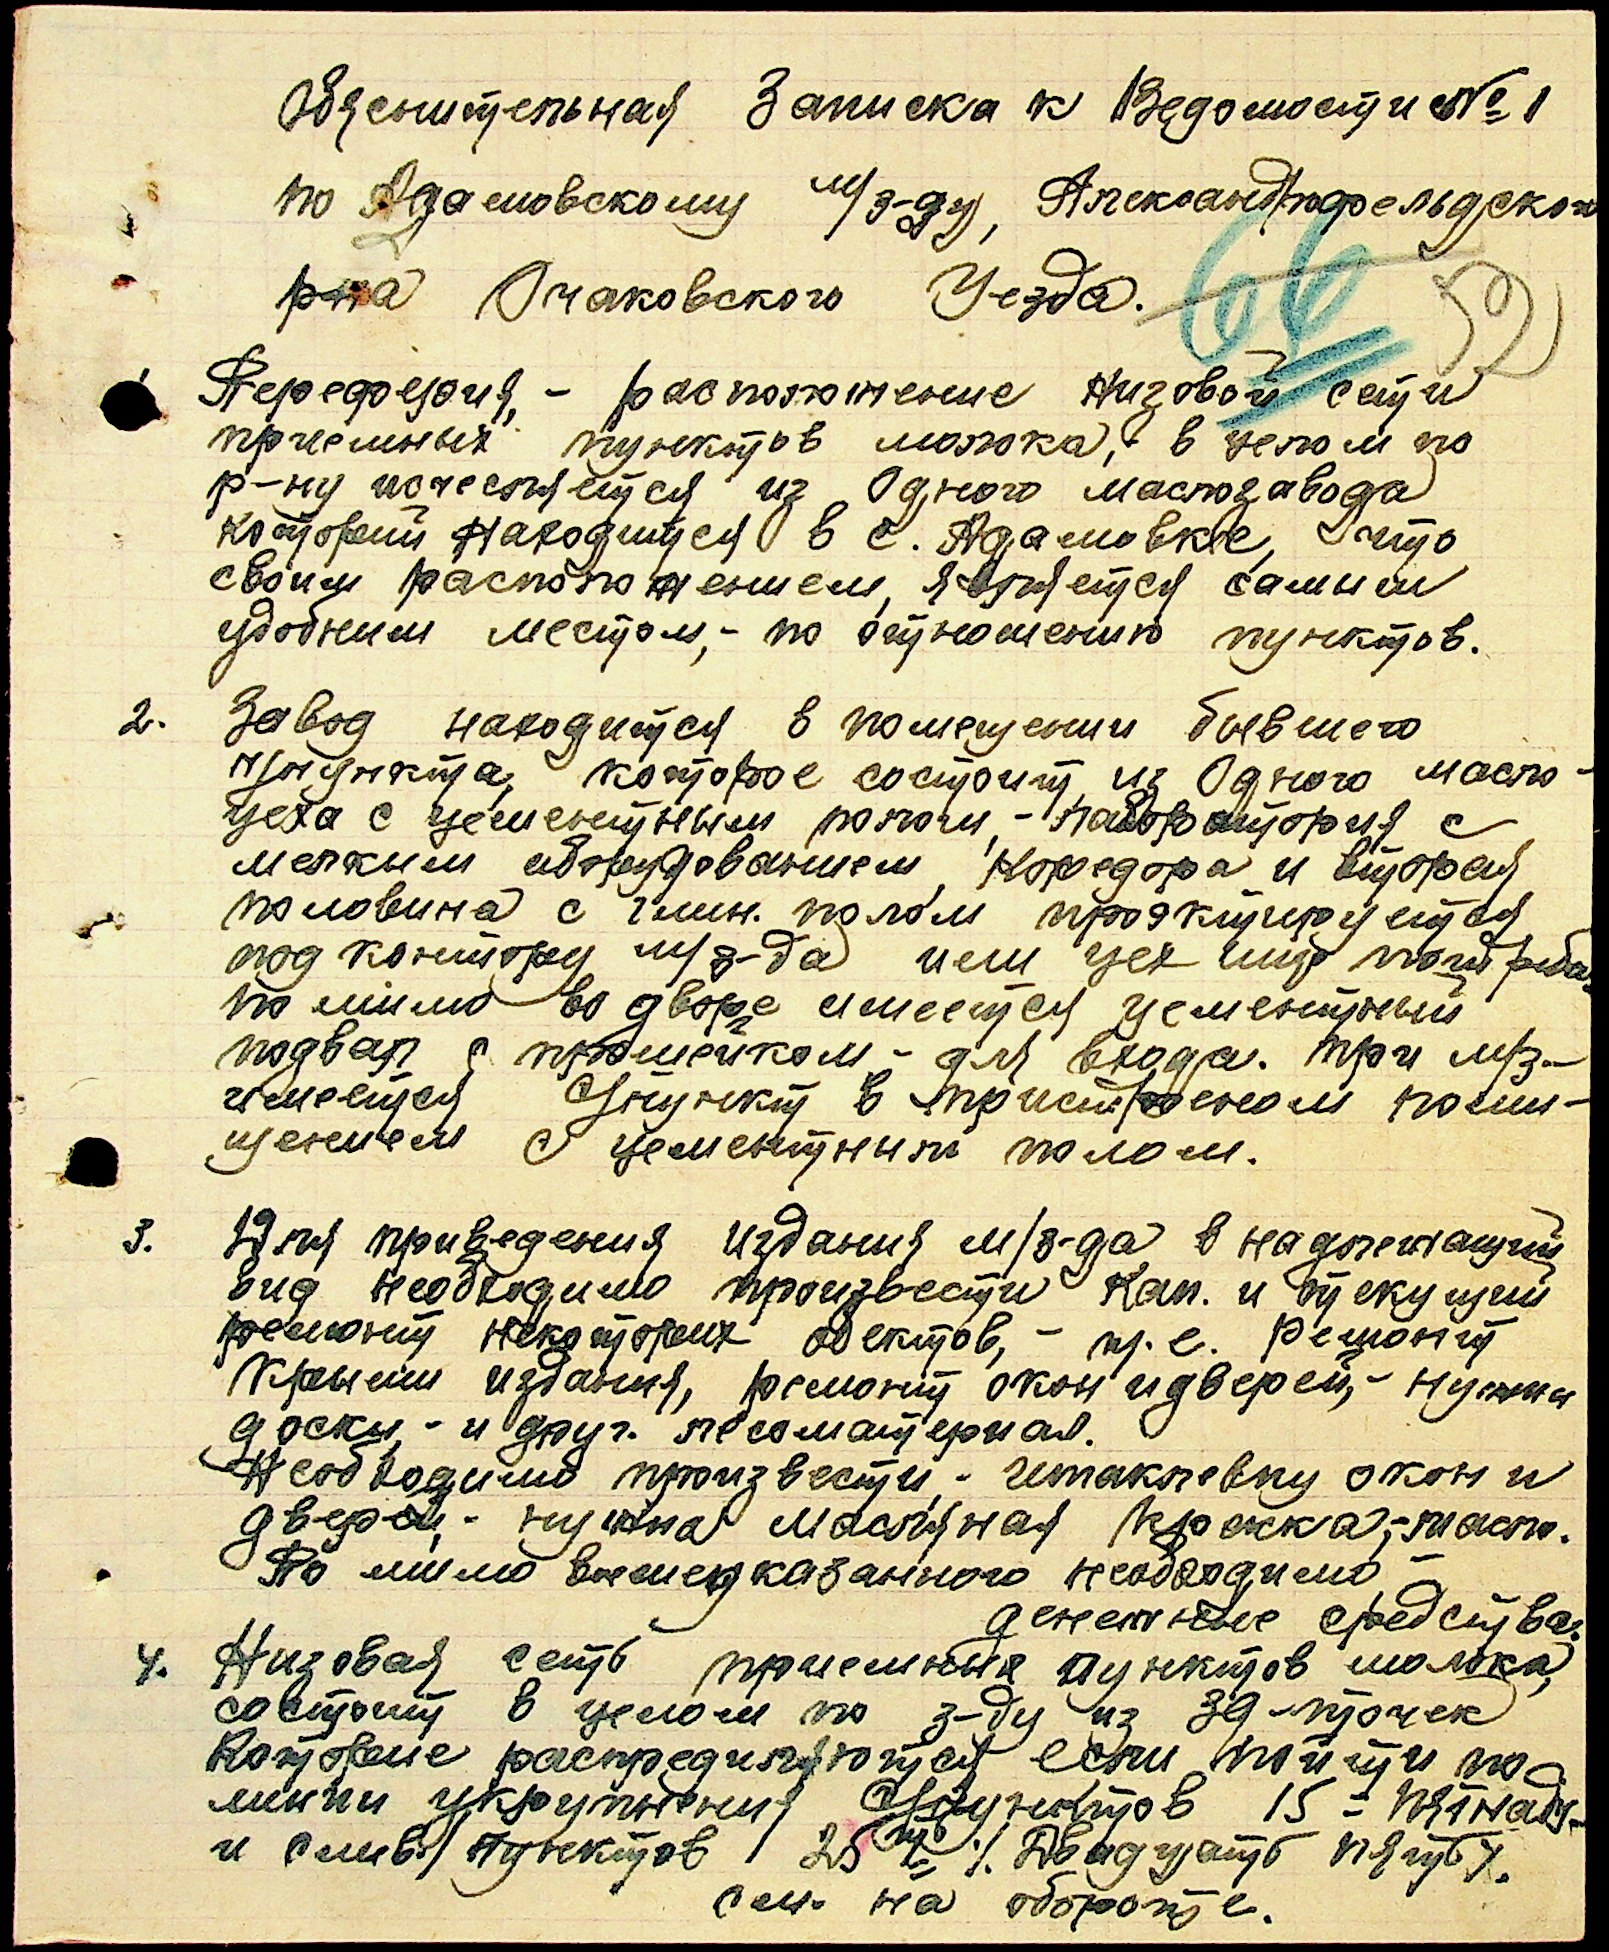 Обяснительная Записка к Ведомости №1
по Адамовскому м/з-ду, Александрфельдского
р-на Очаковского Уезда.
66 52
1 Переферия, - расположение Низовой сети
приемных пунктов молока, в целом по
р-ну исчесляется из Одного маслозавода
который находится в с. Адамовке, что
своим расположением, является самым
удобным местом, - по отношению пунктов.
2. Завод находится в помещении бывшего
пункта, которое состоит из Одного масло-
цеха с цементным полом, - лаборатория с
мелким оборудованием, Коредора и вторая
половина с глин. полом проэктируется
под контору м/з-да или цех
по мимо во дворе имеется цементный
подвал с - для входа. при м/з-
имеется С/пункт в пристроеном поми-
щением с цементным полом.
3. Для приведения издания м/з-да в надлежащий
вид необходимо произвести Кап. и текущий
ремонт некоторых обектов, - т.е. Ремонт
Крыши издания, ремонт окон и дверей, - нужны
доски, - и друг. лесоматериал.
Необходимо произвести - шпаклевку окон и
дверей, - нужна масляная краска,
По мимо вышеуказанного необходимо -
денежные средства.
4. Низовая сеть приемных пунктов молока,
состоит в целом по з-ду из 39 - точек
Которые распредиляются если пойти по
линии укрупнения С/пунктов 15 - пятнадц-
и слив/пунктов 25 ть /. Двадцать пять /.
см. на обороте.